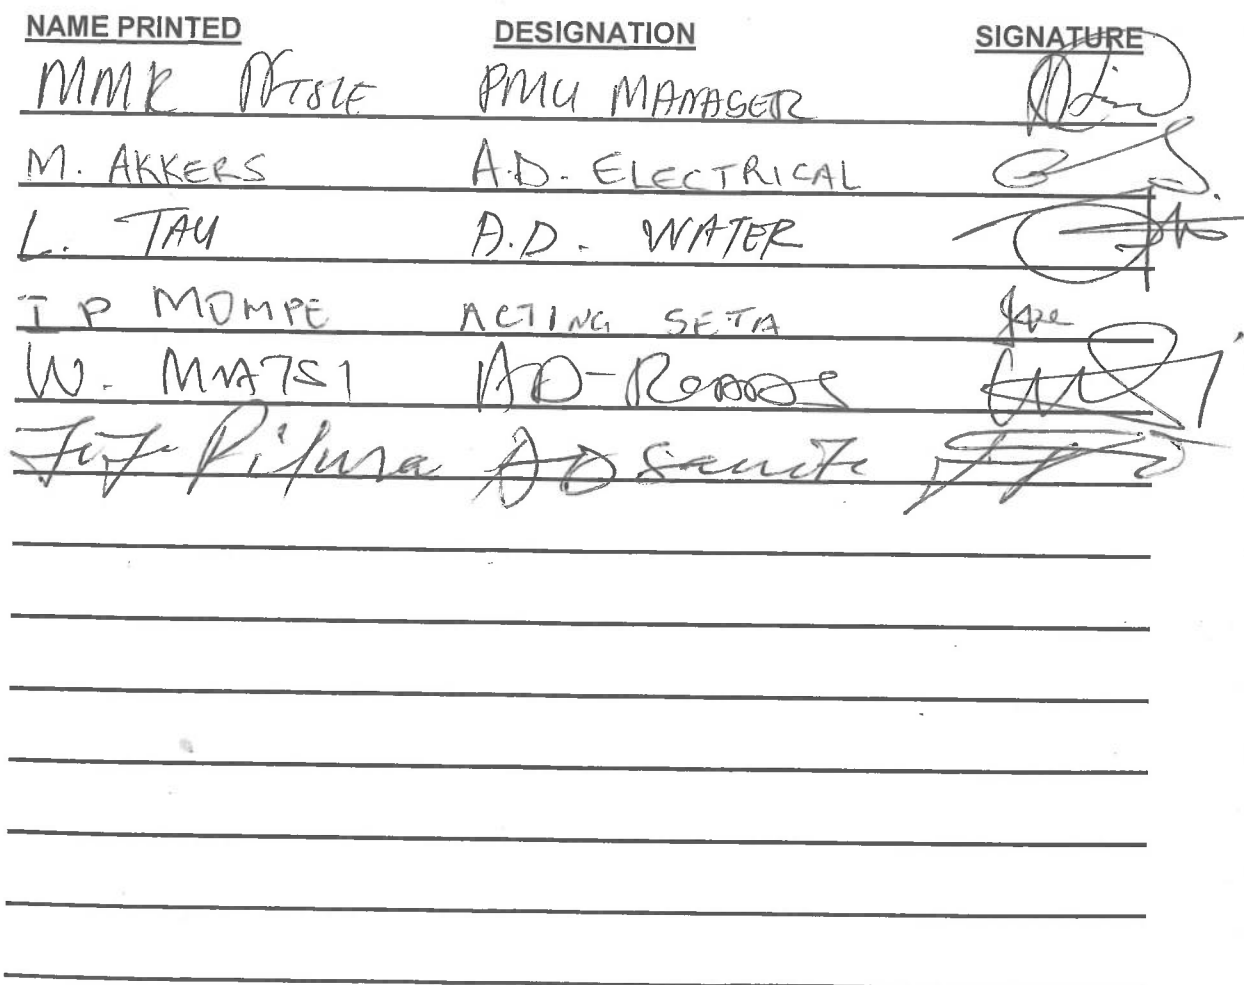 NAME PRINTED DESIGNATION SIGNATURE
MMK PMU MANAGER
M. AKKERS A.D. ELECTRICAL
L. TAU A.D. WATER
I P MOMPE ACTING SETA
W. MATSI AD-ROADS
AD